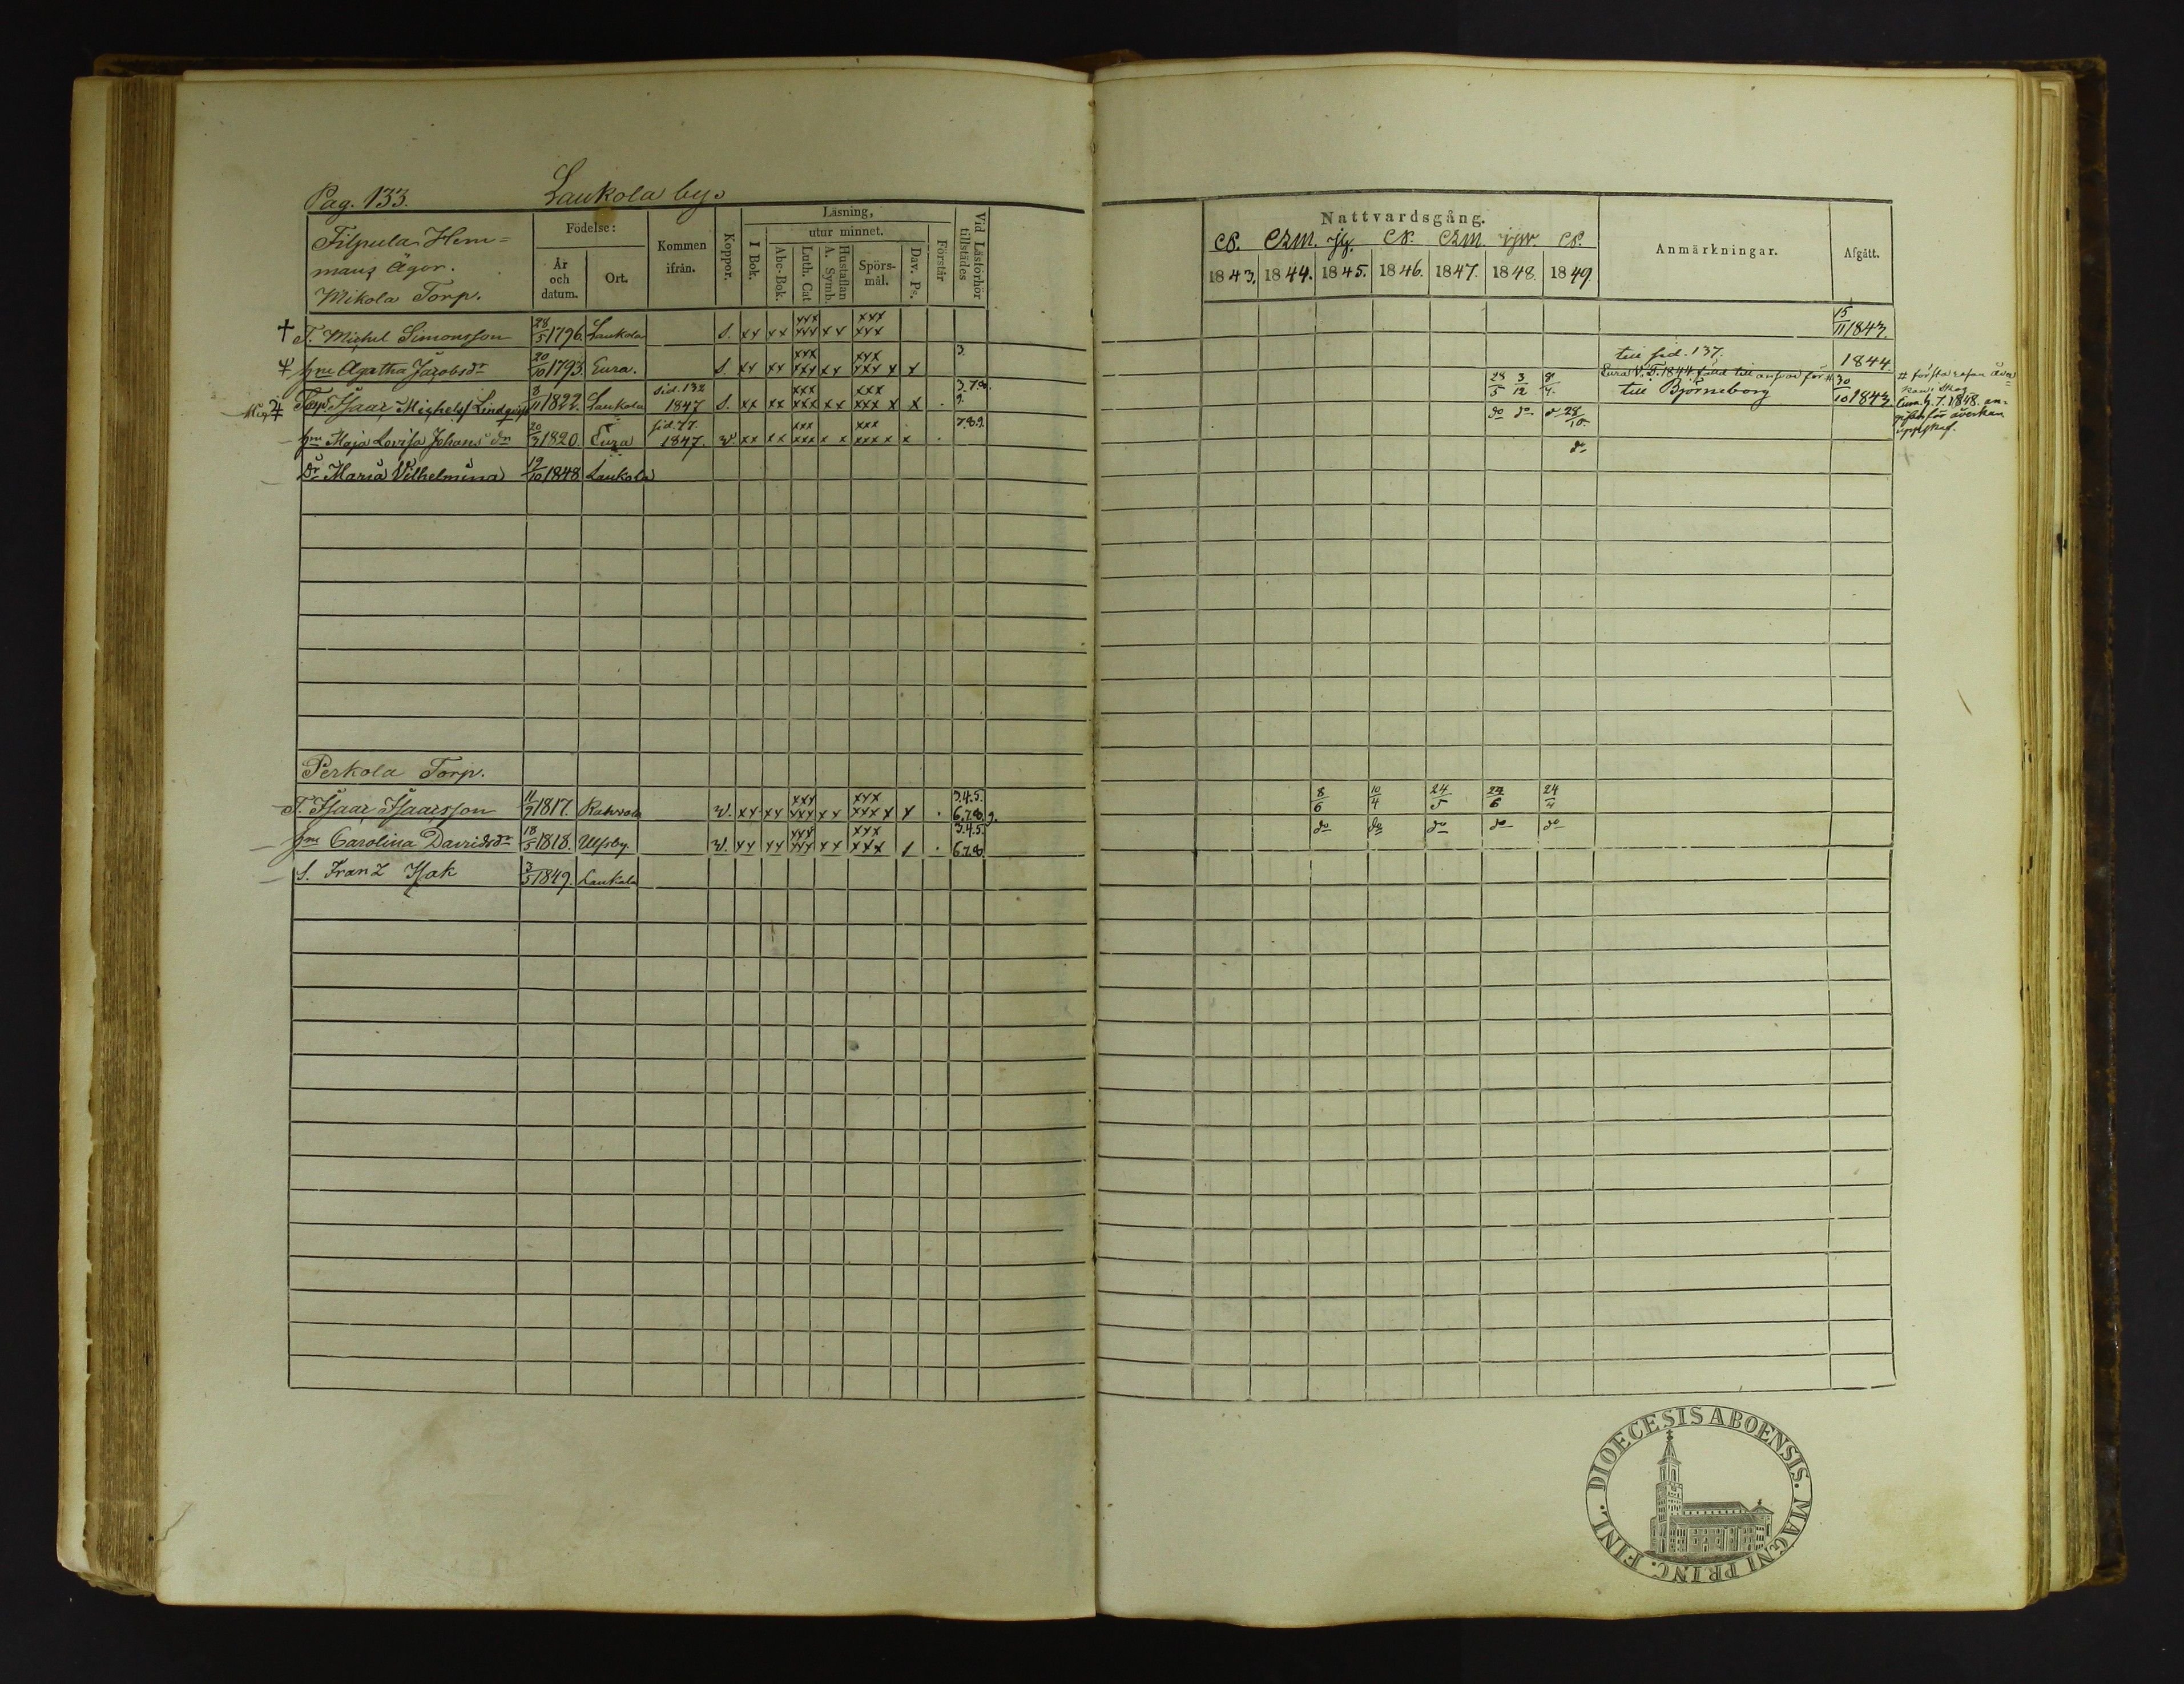 Pag. 133. Laukola by.
Filpula Hem=
mans Ägor.
Mikola Torp.
Födelse:
År och datum.
Ort.
Kommen ifrån.
Koppor.
Läsning,
utur minnet.
I Bok.
Abc-Bok.
Luth. Cat
Hustaflan
A. Symb.
Spörsmål.
Dav. Ps.
Förstår
Vid Läsförhör tillstädes
Nattvardsgång.
1843. 1844. 1845. 1846. 1847. 1848. 1849.
Anmärkningar.
Afgått.
† T. Michel Simonsson 28/5 1796. Laukola S. xx xx xxx xxx xx xxx xxx 15/11 1843.
hnu Agatha Jacobsdr 20/10 1793. Eura. S. xx xx xxx xxx xx xxx xxx x x 3. till sid. 137. 1844.
Isaac Michelss Lindqvist 8/11 1822. Laukola sid. 132 1847 S. xx xx xxx xxx xx xxx xxx x x . 3.7.8. 9. 28/5 3/12 8/4 Eura V.T. 1844 till ansvar för # till Björneborg 30/10 1843
# första resan
Eura H.T. 1848. an-
för åverkan
hnu Maja Lovisa Johansdr 20/3 1820. Eura sid. 77. 1847. W. xx xx xxx xxx x x xxx xxx x x . 7.8.9. do do 28/10
Dr Maria Vilhelmina 19/10 1848 Laukola
Perkola Torp.
T. Isaac Isaacsson 11/9 1817. W. xx xx xxx xxx xx xxx xxx x x . 3.4.5. 6.7.8.9. 8/6 10/4 24/5 24/6 24/4
hnu Carolina Davidsdr 18/5 1818. Ulfsby W. xx xx xxx xxx xx xxx xxx / . 3.4.5. 6.7.8. do do do do do
S. Franz Isak 3/5 1849. Laukola
DIOECESIS ABOENSIS. MAGNI PRINC. FINL.